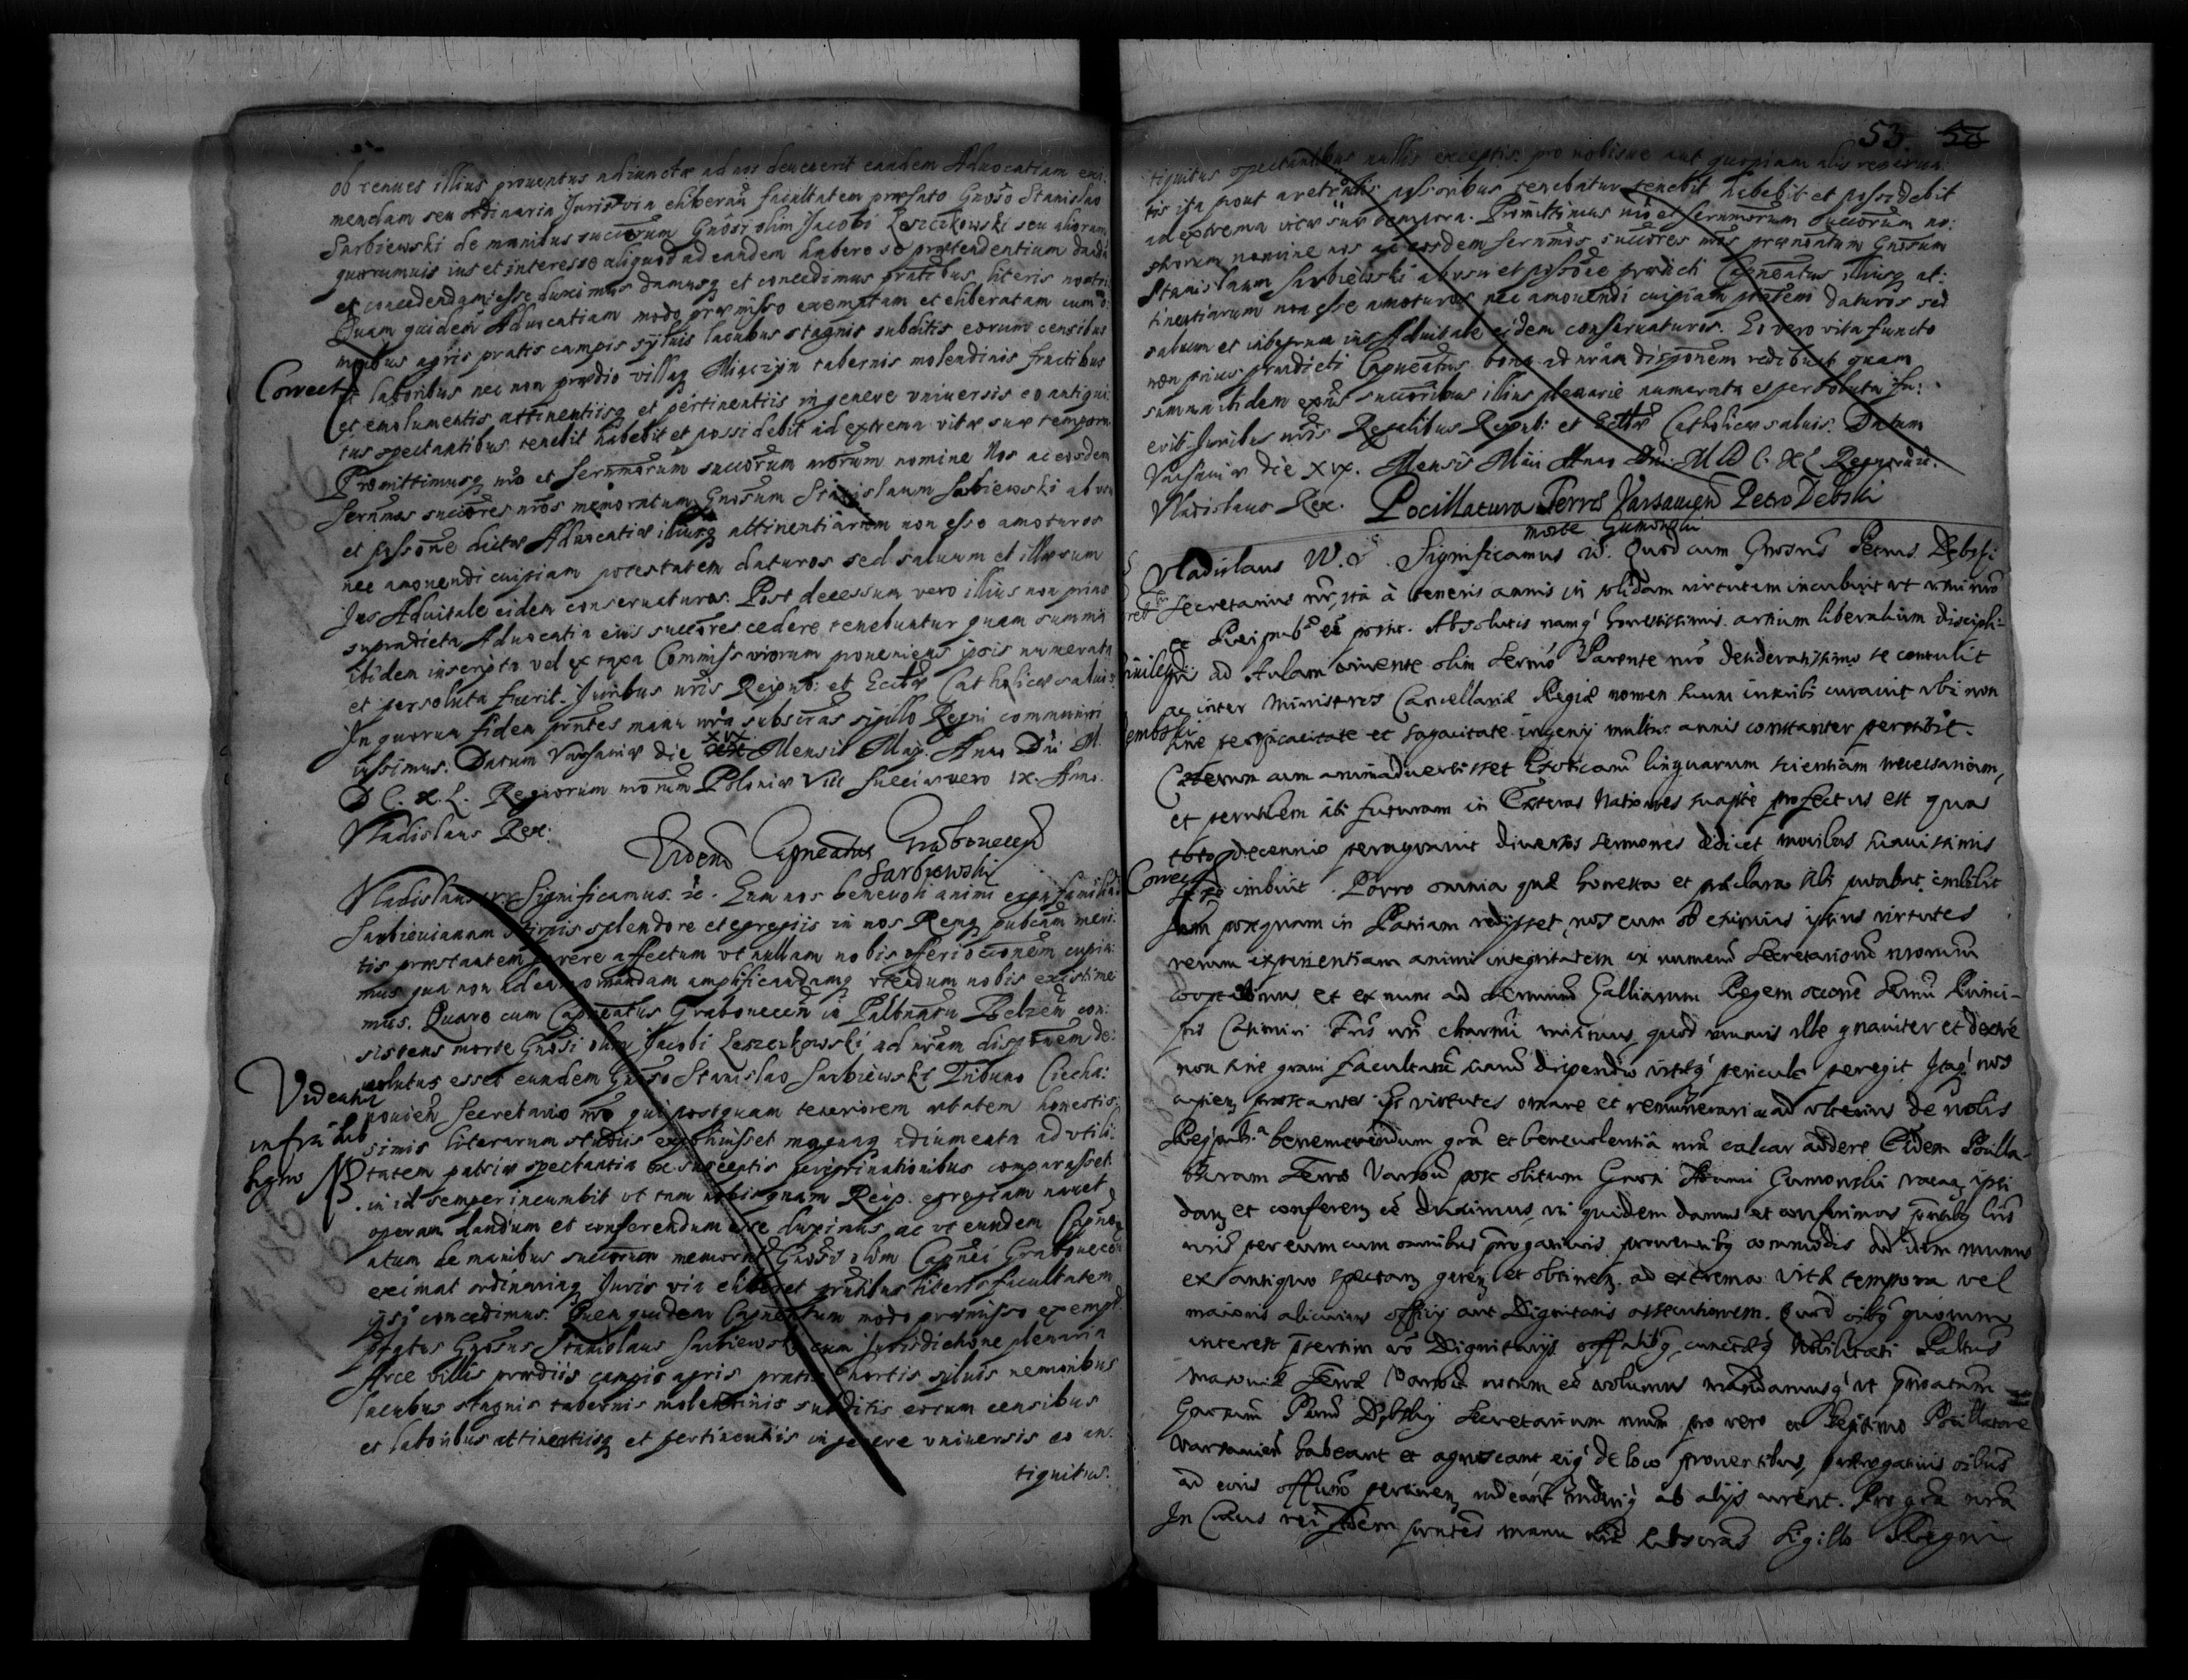 ob tenues illius proventus adiunctæ ad nos devenerit eandem Advocatiam exi:
mendam seu ordinaria Juris via eliberan̄ facultatem præfato Gnōso Stanislao
Sarbiewski de manibus succōrum Gnōsi olim Jacobi Leszczkowski seu aliorum
quorumuis ius et interesse aliquod ad eandem habere se prætendentium dandā
et concedendam esse duximus damusq et concedimus prātibus literis nostris
Quam quidem Advocatiam modo præmisso exemptam et eliberatam cum o:
mnibus agris pratis campis sylvis lacubus stagnis subditis eorum censibus
Correct
et laboribus nec non prædio villaq Miączyn tabernis molendinis fructibus
et emolumentis attinentiisq et pertinentiis in genere universis ex antiqui:
tus spectantibus tenebit habebit et possidebit ad extrema vitæ suæ tempora
Promittimusq nrō et Sernmōrum succōrum nrōrum nomine Nos ac eosdem
Sernmōs succōres nrōs memoratum Gnōsum Stanislaum Sarbiewski ab usu
et possōne dictæ Advocatiæ illiusq attinentiarum non esse amoturos
nec amovendi cuipiam potestatem daturos sed salvum et illæsum
Jus Advitale eidem conservaturos. Post decessum vero illius non prius
supradicta Advocatia eius succōres cedere tenebuntur quam summa
ibidem inscripta vel ex taxa Commissariorum proveniens ipsis numerata
et persoluta fuerit. Juribus nrīs Reipub: et Ecclæ Catholicæ salvis:
In quorum fidem prn̄tes manu nrā subscras sigillo Regni communiri
iussimus. Datum Varsaviæ die XIX Mensis Maij Anno Dni M.
D C. XL. Regnorum nrōrum Poloniæ VIII Sueciæ vero IX. Anno.
Vladislaus Rex.
Eidem Capneatus Grabovecen
Sarbiewski
Vladislaus Significamus. &c. Eum nos benevoli animi erga familiā
Sarbievianam stirpis splendore et egregiis in nos Remq pubcam meri:
tis præstantem gerere affectum ut nullam nobis offeri occōnem cupia:
mus qua non ad eam ornandam amplificandamq utendum nobis existime
mus. Quare cum Capneatus Grabovecen in Palatinatu Belzen con:
sistens morte Gnōsi olim Jacobi Leszczkowski ad nrām dispōnem de:
volutus esset eundem Gnōso Stanislao Sarbiewski Tribuno Ciecha:
Videatur
novien Secretario nrō qui postquam teneriorem ætatem honestis:
infra sub
simis literarum studiis excoluisset magnaq adiumenta ad utili:
signo NB
tatem patriæ spectantia ex susceptis peregrinationibus comparasset
in id semper incumbit ut tam nobis quam Reip. egregiam navet
operam dandum et conferendum esse duximus ac ut eundem Capne
atum de manibus succōrum memorati Gnōsi olim Capnei Grabovecen
eximat ordinariaq Juris via eliberet prn̄tibus literis facultatem
ipsi concedimus. Quem quidem Capneatum modo præmisso exempt.
præfatus Gnōsus Stanislaus Sarbiewski cum Jurisdictione plenaria
Arce villis prædiis campis agris pratis hortis sylvis nemoribus
lacubus stagnis tabernis molendinis subditis eorum censibus
et laboribus attinentiisq et pertinentiis in genere universis ex an:
tiquitus.
53. 50
tiquitus spectantibus nullis exceptis pro nobisve aut quopiam alio reserva:
tis ita prout a retroactis possoribus tenebatur tenebit habebit et possidebit
ad extrema vitæ suæ tempora. Promittimus nrō et Sernmōrum succōrum no:
strorum nomine nos ac eosdem Sernmōs succōres nrōs prænomatum Gnōsum
Stanislaum Sarbiewski ab usu et possōne prædicti Capneatus illiusq at:
tinentiarum non esse amoturos nec amovendi cuipiam ptātem daturos sed
salvum et integrum ius Advitale eidem conservaturos. Eo vero vita functo
non prius prædicti Capneatus bona ad nrām dispōnem redibunt quam
summa ibidem succōribus illius plenarie numerata et persoluta fu:
erit Juribus nrīs Regalibus Reipub: et Ecclæ Catholicæ salvis. Datum
Varsaviæ die XIX. Mensis Maii Anno Dni M D C. XL Regnorū.
Vladislaus Rex. Pocillatura Terræ Varsavien Petro Debski
morte Gumowski
Vladislaus W. S. Significamus &c. Quod cum Gnosus Petrus Debski
Secretarius nr, ita à teneris annis in solidam virtutem incubuit ut usui nrō
et Reipubæ eē posset. Absolutis namq honestissimis artium liberalium discipli-
nis ad Aulam vivente olim Sermo Parente nrō desideratissimo se contulit
ac inter Ministros Cancellariæ Regiæ nomen suum inscribi curavit ubi non
embski
sine perspicacitate et sagacitate ingenij multis annis constanter permansit.
Cæterum cum animadvertisset Exoticarū linguarum scientiam necessariam,
et perutilem sibi futuram in Exteras Nationes suapte profectus est quas
toto decennio peragravit diversos sermones didicit moribus suavissimis
Correct
se imbuit. Porro omnia quæ honesta et præclara sibi putabat imbibit
Tum postquam in Patriam redijsset, nos eum ob eximias ipsius virtutes
rerum experientiam animi integritatem in numerū Secretariorū nrorum
cooptavimus et ex nunc ad Sermum Galliarum Regem occōne Sermi Princi-
pis Casimiri Frīs nri charmi misimus, quod munus ille gnaviter et dextre
non sine gravi facultatū suarū dispendio vitæq periculo peregit Itaq nos
cupien præstantes eius virtutes ornare et remunerari ac ad ulterius de nobis
Reipub.a benemerendum gra et benevolentia nrā calcar addere Eidem Pocilla-
turam Terræ Varsavien post obitum Gnosi Adami Gumowski vacan ipsi
dan et conferen eē duximus, uti quidem damus et conferimus prn̄tibq Lris
nris per eum cum omnibus prærogativis, proventibq commodis ad idem munus
ex antiquo spectan geren et obtinen ad extrema vitæ tempora vel
maioris alicuius officij aut Dignitatis assecutionem. Quod oībq quorum
interest præsertim vō Dignitarijs officialibq cunctæq Nobilitati Palatus
Masoviæ Terræ Varsavien notum eē volumus mandamusq ut prænoatum
Gnosum Petrum Debskij Secretarium nrum pro vero et legitimo Pocillatore
Varsavien habeant et agnoscant eiq de loco proventibus, prærogativis oībus
ad eius officiū pertinen respondeant ab alijs curent. Pro gra nra
In Cuius rei fidem prn̄tes manu nra subscras Sigillo Regni